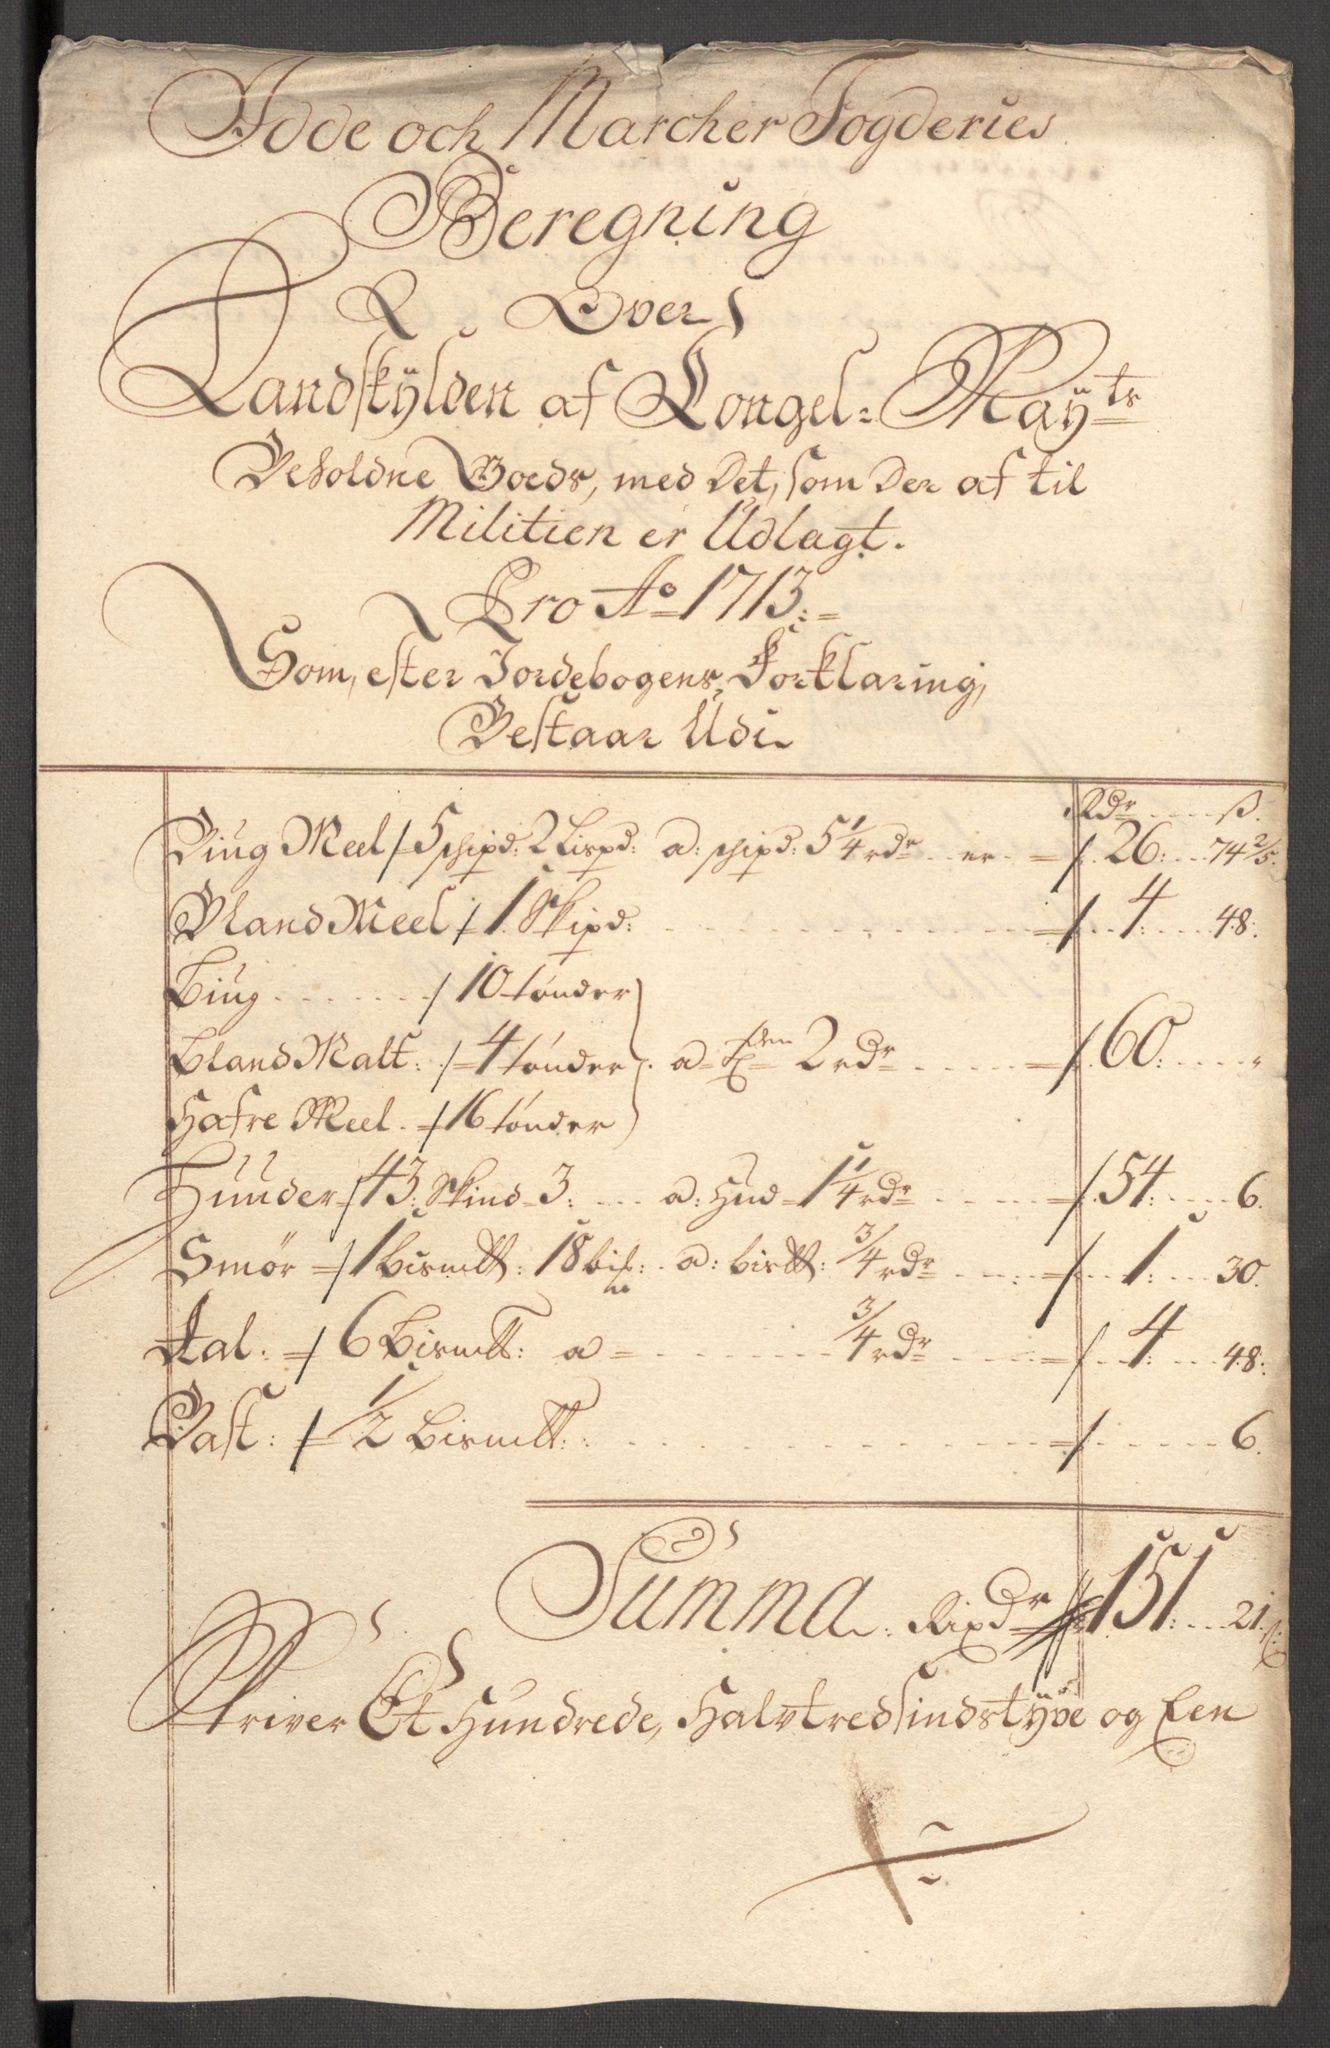 Idde och Marcher Fogderies
Beregning
Over
Landskÿlden af Kongel: Maÿts
Beholdne Goeds, med Det, som Der af til
Militien er Udlagt.
Pro Ao 1713:
Som, efter Jordebogens Forklaring,
Bestaar Udi
Rdr ß.
Biug Meel / 5 schipd: 2 Lispd: a: schipd: 5 1/4 rdr er / 26: 74 2/5:
Bland Meel / 1 Skipd: / 4: 48:
Biug / 10 tønder
Bland Malt: / 4 tønder a Tden 2 rdr / 60:
Hafre Meel / 16 tønder
Huuder / 43: Skind 3: a: Hud 1 1/4 rdr / 54: 6.
Smør / 1 Bismtt: 18 a: bistt: 3/4 rdr / 1: 30.
Aal: / 6 Bismtt: a 3/4 rdr / 4: 48:
Bast: / 1/2 Bismtt: / 6.
Summa Rixdr 151: 21 ß:
Skriver Et Hundrede, Halvtredsindstÿve og Een